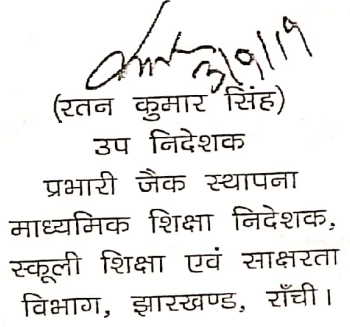 3/9/19
(रतन कुमार सिंह)
उप निदेशक
प्रभारी जैक स्थापना
माध्यमिक शिक्षा निदेशक,
स्कूली शिक्षा एवं साक्षरता
विभाग, झारखण्ड, राँची।